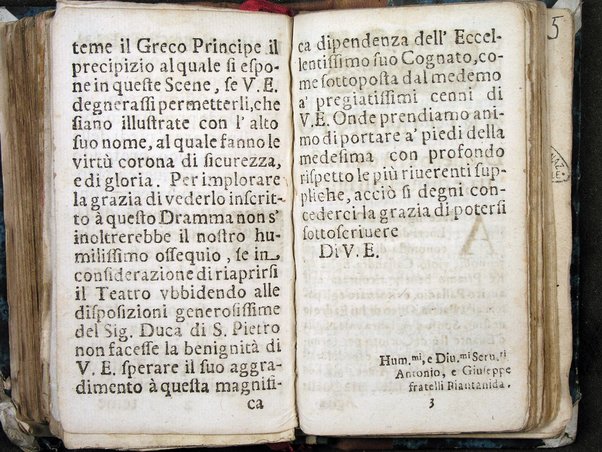 teme il Greco Principe il
precipizio al quale si espo-
ne in queste Scene, se V. E.
degnerassi permetterli, che
siano illustrate con l' alto
suo nome, al quale fanno le
virtù corona di sicurezza,
e di gloria. Per implorare
la grazia di vederlo inscrit-
to à questo Dramma non s'
inoltrerebbe il nostro hu-
milissimo ossequio, se in
considerazione di riaprirsi
il Teatro vbbidendo alle
disposizioni generosissime
del Sig. Duca di S. Pietro
non facesse la benignità di
V. E. sperare il suo aggra-
dimento à questa magnifi-
ca
ca dipendenza dell' Eccel-
lentissimo suo Cognato, co-
me sottoposta dal medemo
a' pregiatissimi cenni di
V.E. Onde prendiamo ani-
mo di portare a' piedi della
medesima con profondo
rispetto le più riuerenti sup-
pliche, acciò si degni con-
cederci la grazia di potersi
sottoscriuere
Di V. E.
Hum.mi, e Diu.mi Seru.ri
Antonio, e Giuseppe
fratelli Piantanida.
3
5